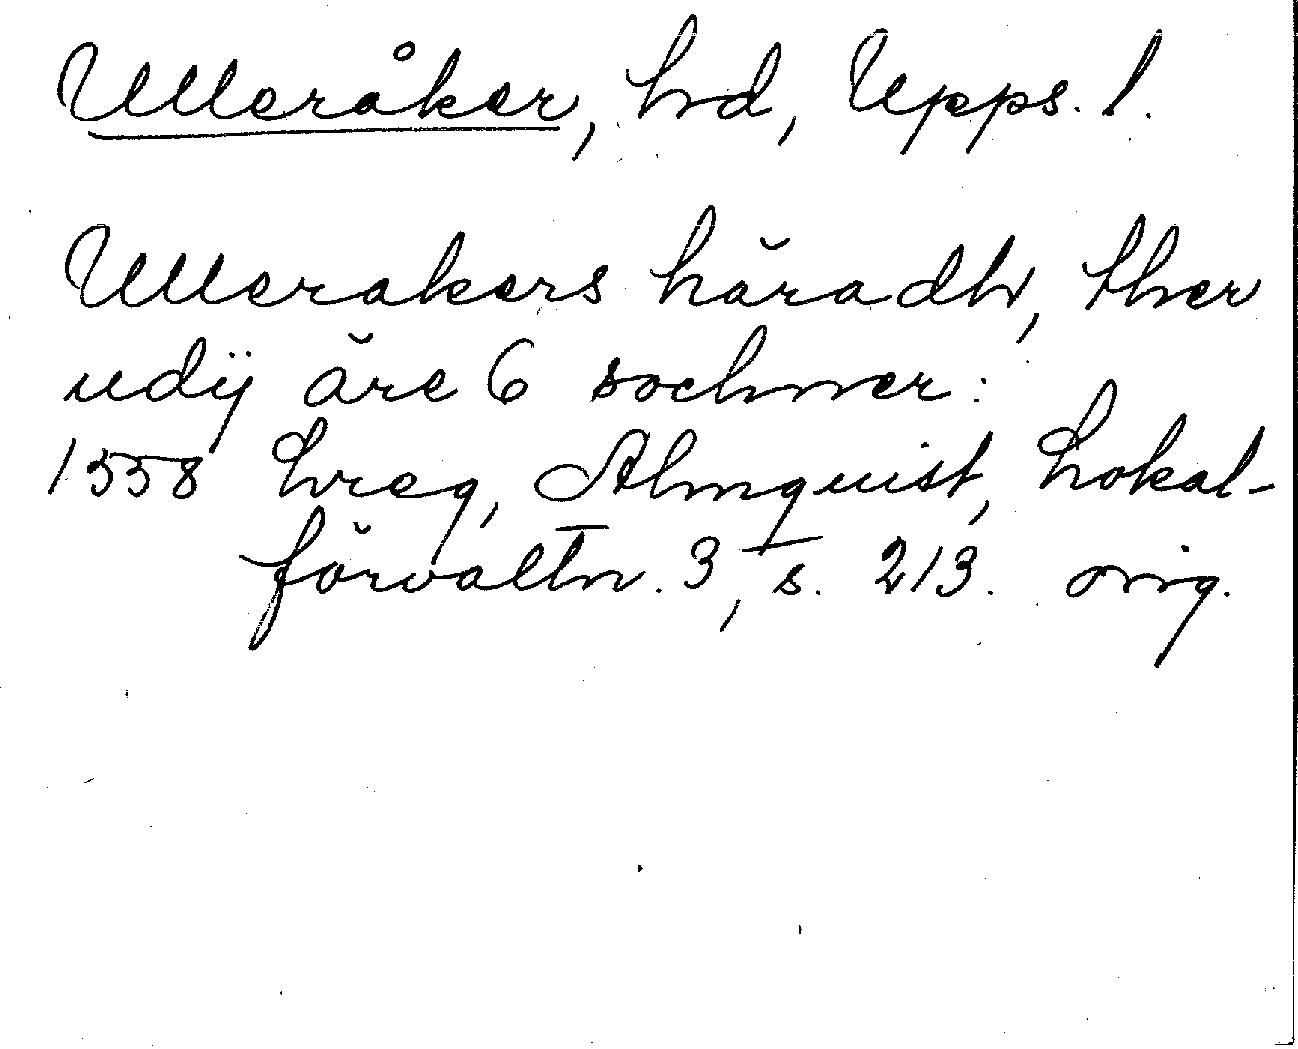 Ulleråker, hd, Upps. l.
Ullerakers häradh, ther
udÿ äre 6 sochner:
1558 hreg, Almquist, Lokal-
förvaltn. 3, s. 213. orig.